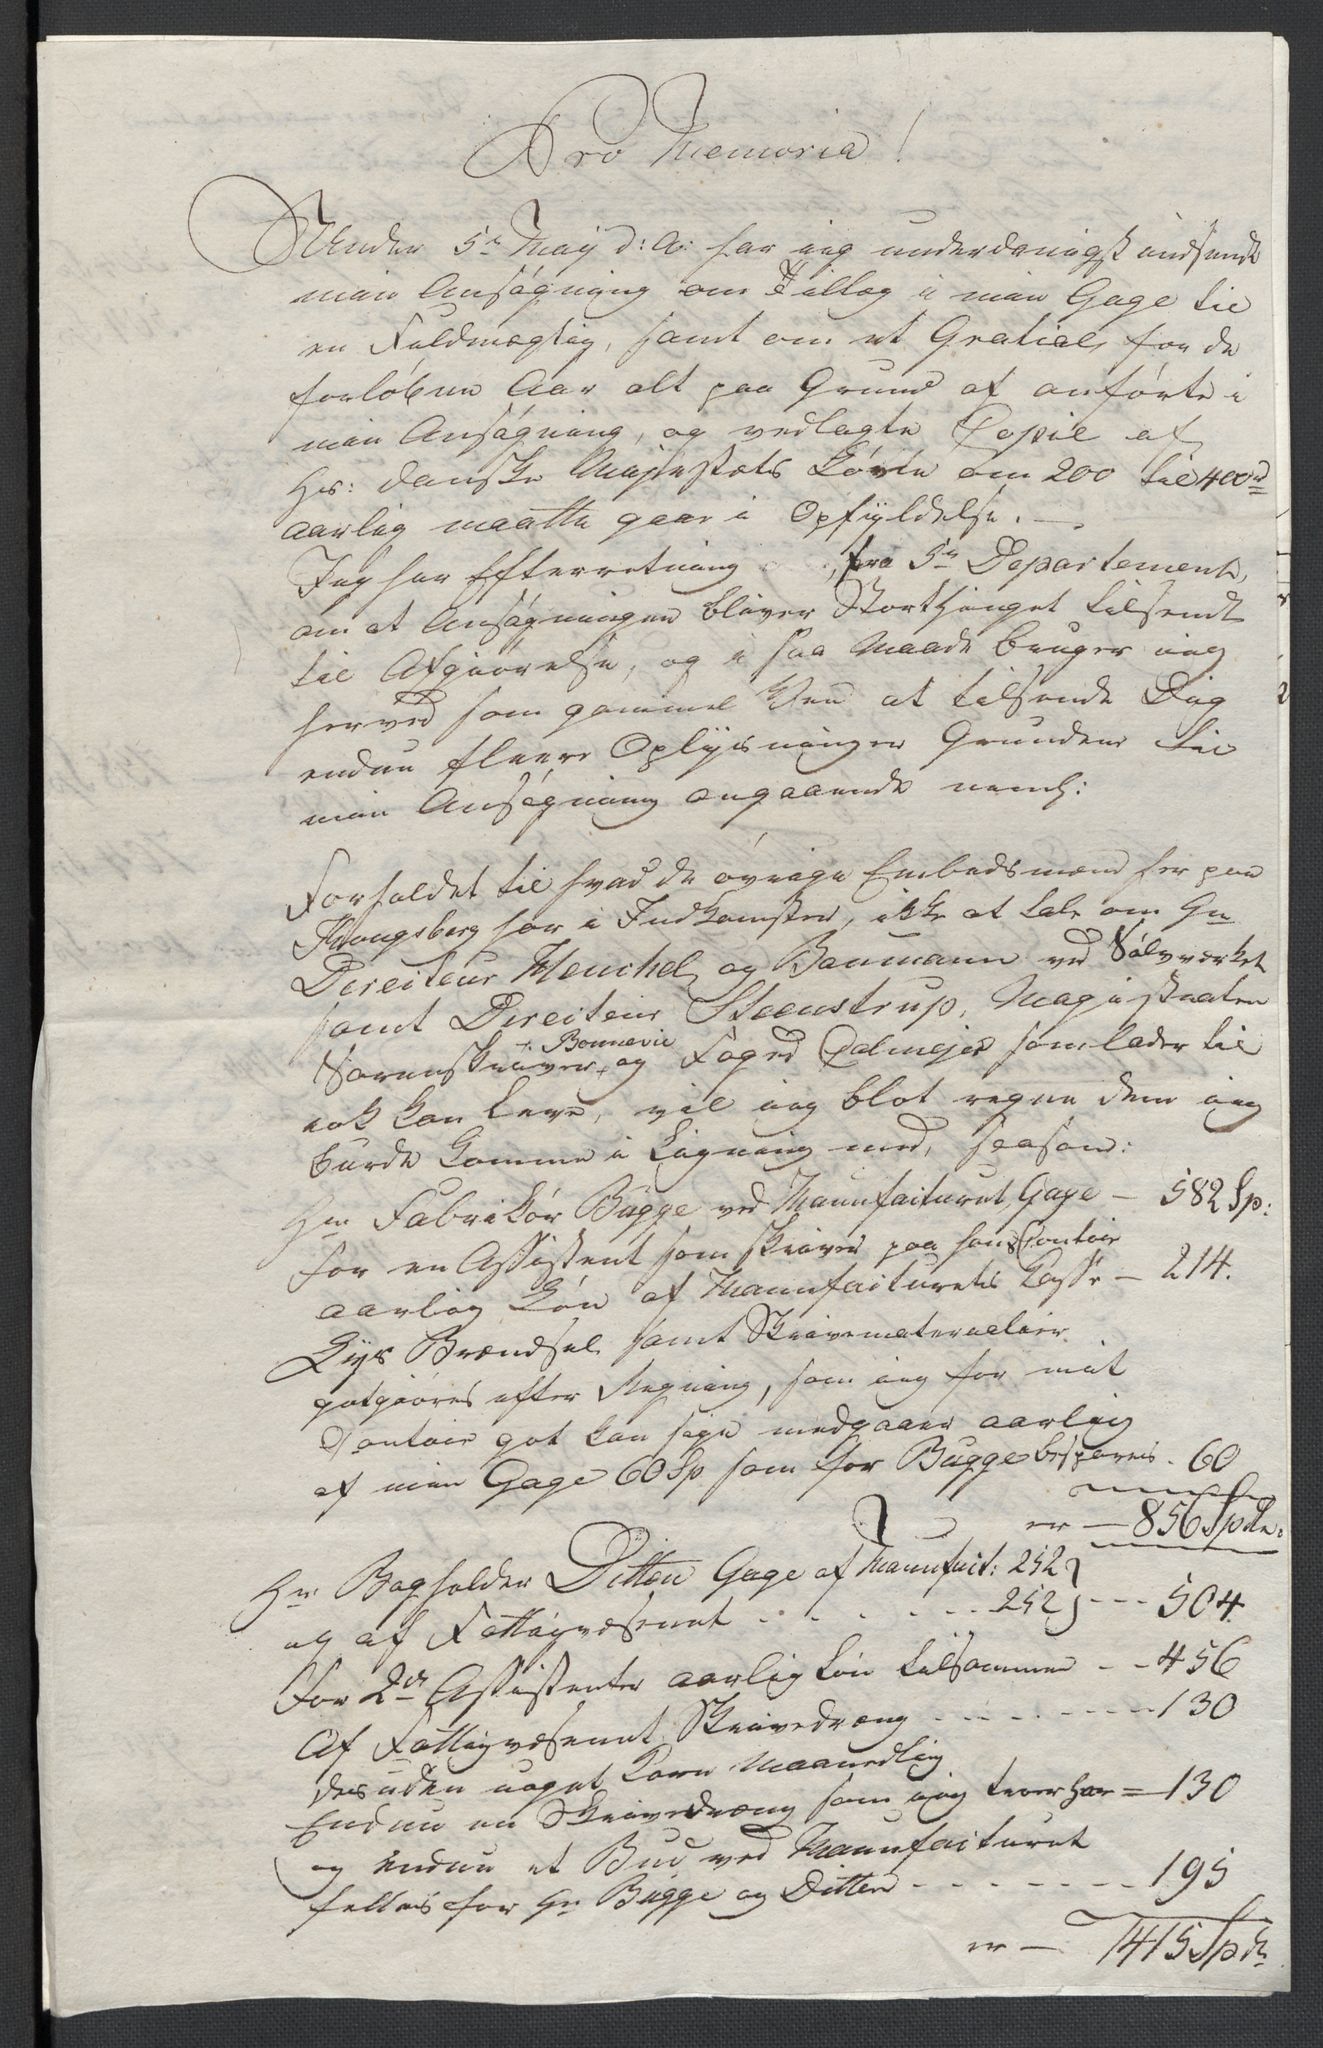 Pro Memoria!
Under 5te May d: A: har jeg underdanigst indsendt
min Ansøgning om Tillæg i min Gage til
en Fuldmægtig, samt om et Gratial for de
forløbne Aar alt paa Grund af anførte i
min Ansøgning, og vedlagte Copie af
Hs: danske Majestæts Løvte om 200 til 400rd
aarlig maatte gaae i Opfyldelse. —
Jeg har Efterretning fra 5te Departement,
om at Ansøgningen bliver Storthinget tilsendt
til Afgiørelse, og i saa Maade bruger jeg
herved som gammel Ven at tilsende Dig
endnu fleere Oplysninger Grundene til
min Ansøgning angaaende neml:
Forholdet til hvad de øvrige Embedsmænd her paa
Kongsberg har i Indkomster, ikke at tale om Hr
Directeur Henchel og Baumann ved Sølvverket
samt Directeur Steenstrup, Magistraten
Sorenskriver + Bonnevie og Foged Colmejer som lader til
nok kan leve, vil jeg blot regne dem jeg
burde komme i Ligning med, saasom:
Hr Fabrikør Bugge ved Manufacturet, Gage — 582 Sp:
For en Assistent som skriver paa hans Contoir
aarlig Løn af Manufacturets Casse — 214.
Lys Brændsel samt Skrivematerialier
godgiøres efter Regning, som jeg for mit
Contoir got kan sige medgaaer aarlig
af min Gage 60 Sp som for Bugge bespares . 60
er — 856 Spdlr.
Hr Bogholder Ditten Gage af Manufact: 252
og af Fattigvæsenet . . . . . . . 252 - - - 504
For 2de Assistenter aarlig Løn tilsammen - - 456
Af Fattigvæsenet Skrivedræng . . . . . . . 130
desuden noget Korn Maanedlig
Endnu en Skrivedræng som jeg troer har = 130
og endnu et Bud ved Manufacturet
felles for Hr Bugge og Ditten . . . . . . . 195
er — 1415 Spdr